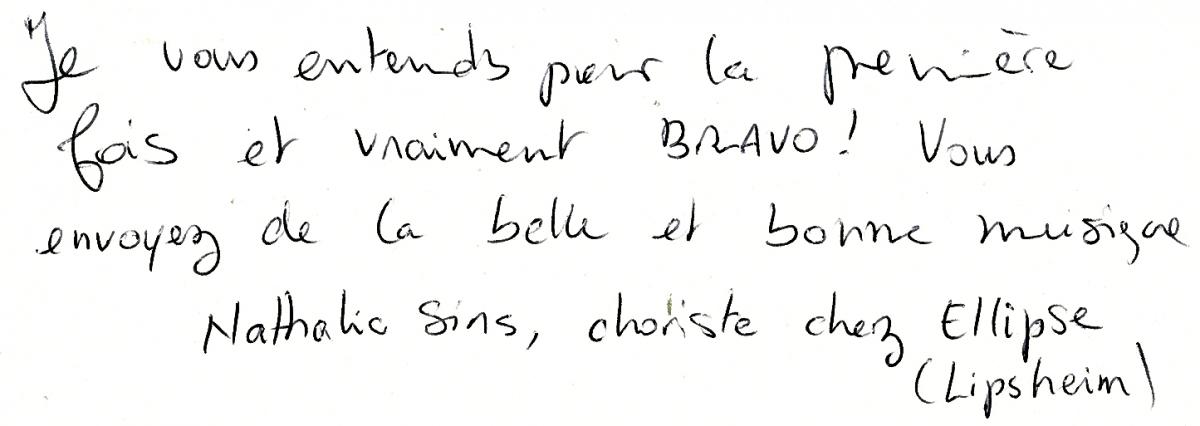 Je vous entends pour la première
fois et vraiment BRAVO! Vous
envoyez de la belle et bonne musique
Nathalie Sins, choriste chez Ellipse
(Lipsheim)